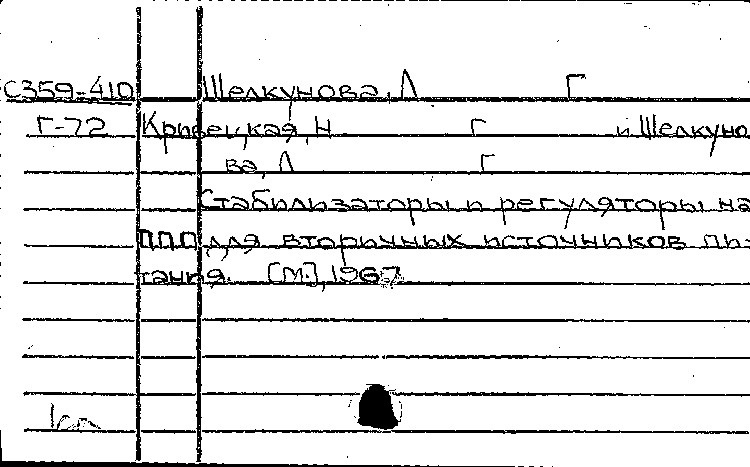 С359-410 Шелкунова, Л Г
Г-72 Кривецкая, Н Г и Шелкуно
ва, Л Г
Стабилизаторы и регуляторы на
ППП для вторичных источников пи-
тания. [М.], 1967